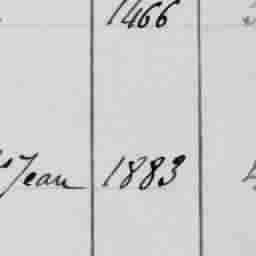 1466
Jean 1883